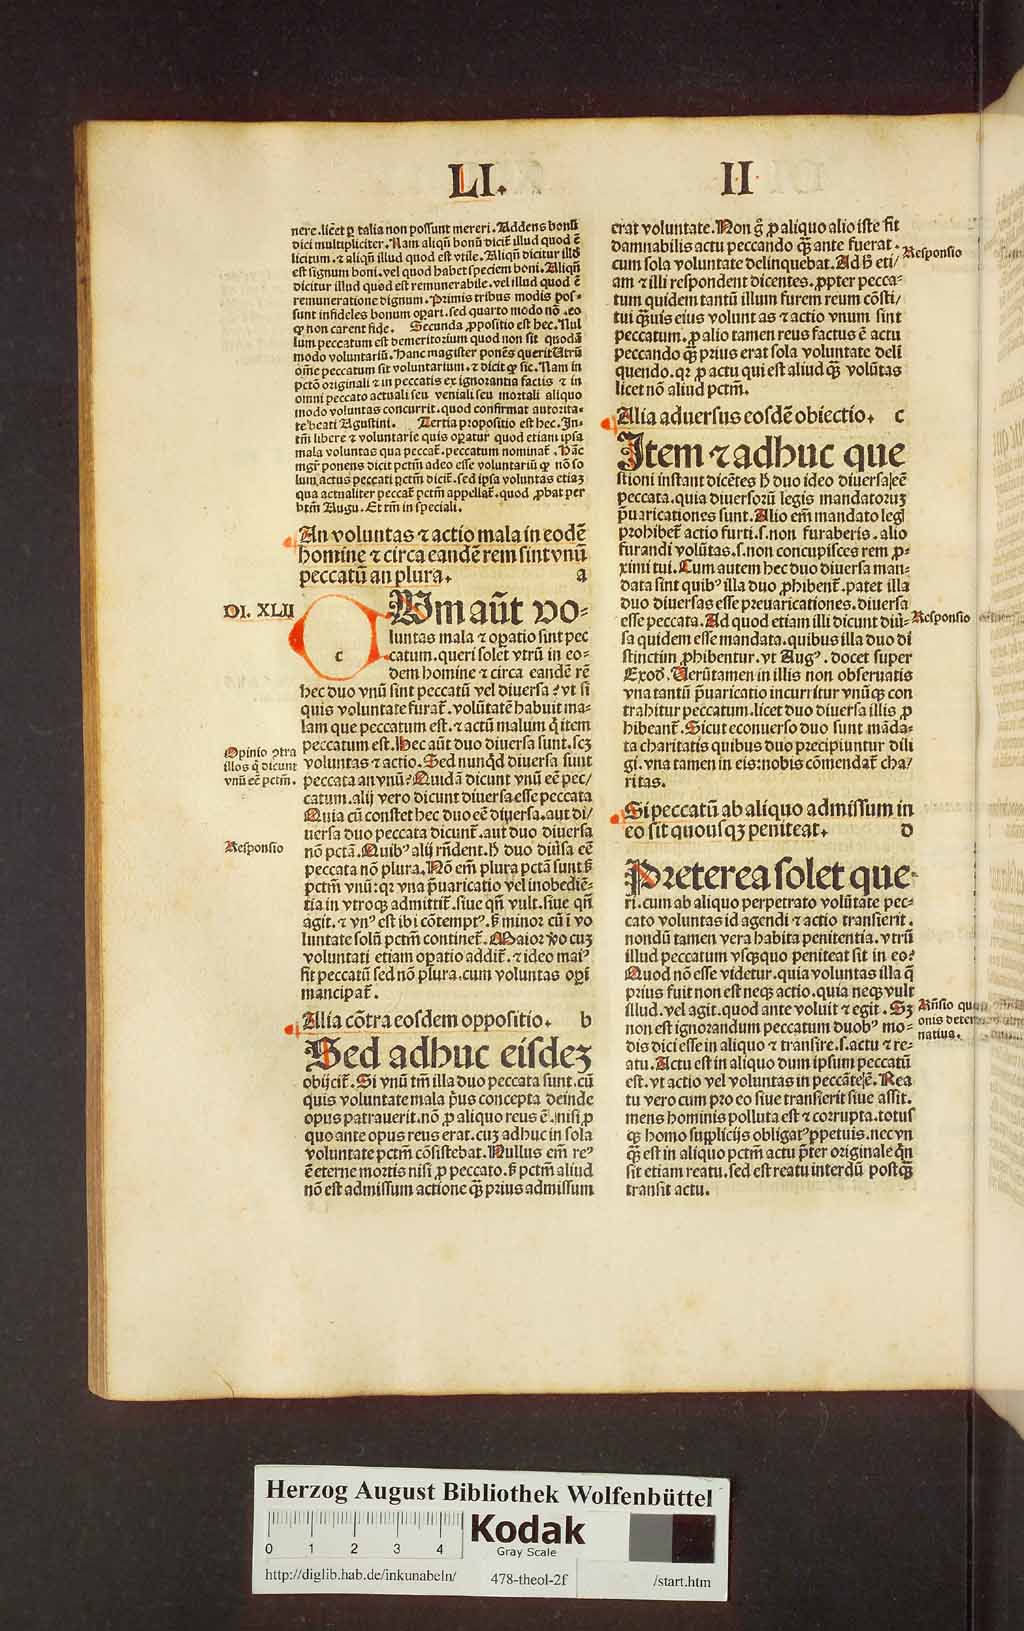 LI. II
nere.licēt ꝑ talia non possunt mereri.Addens bonū
dici multipliciter.Nam aliqñ bonū dicit᷑ illud quod ē
licitum.⁊ aliqñ illud quod est vtile.Aliqñ dicitur illđ
est signum boni.vel quod habet speciem boni.Aliqñ
dicitur illud quod est remunerabile.vel illud quod ē
remuneratione dignum.Primis tribus modis pos-
sunt infideles bonum oꝑari.sed quarto modo nō.eo
ꝙ non carent fide. Secunda ꝓpositio est hec.Nul
lum peccatum est demeritorium quod non sit quodā
modo voluntariū.Hanc magister ponēs querit Vtrū
om̄e peccatum sit voluntarium.⁊ dicit ꝙ sic.Nam in
pctō originali ⁊ in peccatis ex ignorantia factis ⁊ in
omni peccato actuali seu veniali seu mortali aliquo
modo voluntas concurrit.quod confirmat autorita-
te beati Agustini. Tertia propositio est hec.In-
tm̄ libere ⁊ voluntarie quis oꝑatur quod etiam ipsa
mala voluntas qua peccat᷑.peccatum nominat᷑.Hāc
mgr̄ ponens dicit pctm̄ adeo esse voluntariū ꝙ nō so
lum actus peccati pctm̄ dicit᷑.sed ipsa voluntas etiaꝫ
qua actualiter peccat᷑ pctm̄ appellat᷑.quod ꝓbat per
btm̄ Augu.Et tm̄ in speciali.
An voluntas ⁊ actio mala in eodē
homine ⁊ circa eandē rem sint vnū
peccatū an plura. a
DI. XLII
c
Vm aūt vo-
luntas mala ⁊ oꝑatio sint pec
catum.queri solet vtrū in eo-
dem homine ⁊ circa eandē rē
hec duo vnū sint peccatū vel diuersa?vt si
quis voluntate furat᷑.volūtatē habuit ma-
lam que peccatum est.⁊ actū malum ꝗ item
peccatum est.Hec aūt duo diuersa sunt.scꝫ
voluntas ⁊ actio.Sed nunqđ diuersa sunt
peccata an vnū?Quidā dicunt vnū eē pec/
catum.alij vero dicunt diuersa esse peccata
Quia cū constet hec duo eē diuersa.aut di/
uersa duo peccata dicunt᷑.aut duo diuersa
nō pctā.Quibꝰ alij rn̄dent.ꝧ duo diūsa eē
peccata nō plura.Nō em̄ plura pctā sunt sꝫ
pctm̄ vnū:qꝛ vna p̄uaricatio vel inobediē-
tia in vtroqꝫ admittit᷑.siue qn̄ vult.siue qn̄
agit.⁊ vnꝰ est ibi cōtemptꝰ.sꝫ minor cū ī vo
luntate solū pctm̄ continet᷑.Maior ꝟo cuꝫ
voluntati etiam oꝑatio addit᷑.⁊ ideo maiꝰ
fit peccatū sed nō plura.cum voluntas oꝑi
mancipat᷑.
Opinio ꝯtra
illos ꝗ dicunt
vnū eē pctm̄.
Responsio
Alia cōtra eosdem oppositio. b
Sed adhuc eisdeꝫ
obijcit᷑.Si vnū tm̄ illa duo peccata sunt.cū
quis voluntate mala p̄us concepta deinde
opus patrauerit.nō ꝓ aliquo reus ē.nisi ꝓ
quo ante opus reus erat.cuꝫ adhuc in sola
voluntate pctm̄ cōsistebat.Nullus em̄ reꝰ
ē eterne mortis nisi ꝓ peccato.sꝫ pctm̄ aliud
nō est admissum actione qꝫ prius admissum
erat voluntate.Non g̊ ꝓ aliquo alio iste fit
damnabilis actu peccando qꝫ ante fuerat.
cum sola voluntate delinquebat.Ad ꝧ eti/
am ⁊ illi respondent dicentes.ꝓpter pecca-
tum quidem tantū illum furem reum cōsti/
tui qꝫuis eius voluntas ⁊ actio vnum sint
peccatum.ꝓ alio tamen reus factus ē actu
peccando qꝫ prius erat sola voluntate deli
quendo.qꝛ ꝓ actu qui est aliud qꝫ volūtas
licet nō aliud pctm̄.
Responsio
Alia aduersus eosdē obiectio. c
Item ⁊ adhuc que
stioni instant dicētes ꝧ duo ideo diuersa eē
peccata.quia diuersorū legis mandatoruꝫ
p̄uaricationes sunt.Alio em̄ mandato legꝭ
prohibet᷑ actio furti.s.non furaberis.alio
furandi volūtas.s.non concupisces rem ꝓ-
ximi tui.Cum autem hec duo diuersa man-
data sint quibꝰ illa duo ꝓhibent᷑.patet illa
duo diuersas esse preuaricationes.diuersa
esse peccata.Ad quod etiam illi dicunt diū-
sa quidem esse mandata.quibus illa duo di
stinctim ꝓhibentur.vt Augꝰ.docet super
Exođ.Verūtamen in illis non obseruatis
vna tantū p̄uaricatio incurritur vnūqꝫ con
trahitur peccatum.licet duo diuersa illis ꝓ
hibeant᷑.Sicut econuerso duo sunt māda-
ta charitatis quibus duo precipiuntur dili
gi.vna tamen in eis:nobis cōmendat᷑ cha/
ritas.
Responsio
Si peccatū ab aliquo admissum in
eo sit quousqꝫ peniteat. d
Preterea solet que-
ri.cum ab aliquo perpetrato volūtate pec-
cato voluntas id agendi ⁊ actio transierit.
nondū tamen vera habita penitentia.vtrū
illud peccatum vsqꝫquo peniteat sit in eo?
Quod nō esse videtur.quia voluntas illa ꝗ̄
prius fuit non est neqꝫ actio.quia neqꝫ vult
illud.vel agit.quod ante voluit ⁊ egit.Sꝫ
non est ignorandum peccatum duobꝰ mo-
dis dici esse in aliquo ⁊ transire.s.actu ⁊ re-
atu.Actu est in aliquo dum ipsum peccatū
est.vt actio vel voluntas in peccāte ē.Rea
tu vero cum pro eo siue transierit siue assit.
mens hominis polluta est ⁊ corrupta.totus
qꝫ homo supplicijs obligatꝰ ꝑpetuis.nec vn
qꝫ est in aliquo pctm̄ actu p̄ter originale qn̄
sit etiam reatu.sed est reatu interdū postqꝫ
transit actu.
Rn̄sio
natiua.
Herzog August Bibliothek Wolfenbüttel
0 1 2 3 4
Kodak
Gray Scale
http://diglib.hab.de/inkunabeln/ 478-theol-2f /start.htm